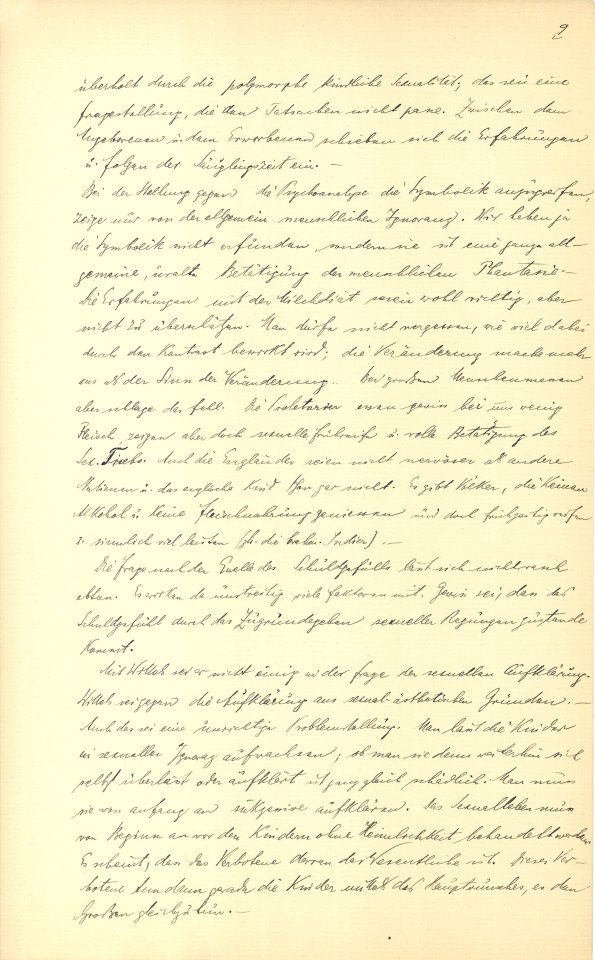 9
überholt durch die polymorphe kindliche Sexualität; das sei eine
Fragestellung, die den Tatsachen nicht passe. Zwischen dem
Angeborenen u dem Erworbenen schieben sich die Erfahrungen
u. Folgen der Säuglingszeit ein. —
Bei der Stellung gegen die Psychoanalyse die Symbolik anzugreifen,
zeige nur von der allgemein menschlichen Ignoranz. Wir haben ja
die Symbolik nicht erfunden, sondern sie ist eine ganz all-
gemeine, uralte Betätigung der menschlichen Phantasie. —
Die Erfahrungen mit der Milchdiät seien wohl richtig, aber
nicht zu überschätzen. Man dürfe nicht vergessen, wie viel dabei
durch den Kontrast bewirkt wird; die Veränderung mache mehr
aus als der Sinn der Veränderung. Bei großen Menschenmassen
aber schlage das fehl. Die Proletarier essen gewiss bei uns wenig
Fleisch, zeigen aber doch sexuelle Frühreife u. volle Betätigung des
Sex. Triebs. Auch die Engländer seien nicht nervöser als andere
Nationen u. das englische Kind schon gar nicht. Es gibt Völker, die keinen
Alkohol u keine Fleischnahrung geniessen und doch frühzeitig reifen
u. sinnlich viel leisten (z.b. die Indier). —
Die Frage nach der Quelle des Schuldgefühls lasse sich nicht rasch
abtun. Es wirken da unstreitig viele Faktoren mit. Gewiss sei, dass das
Schuldgefühl durch das Zugrundegehen sexueller Regungen zustande
kommt.
Mit Wittels sei er nicht einig in der Frage der sexuellen Aufklärung.
Wittels sei gegen die Aufklärung aus sexual-ästhetischen Gründen. —
Auch das sei eine unrichtige Problemstellung. Man lasse die Kinder
in sexueller Ignoranz aufwachsen; ob man sie dann weiterhin sich
selbst überlasse oder aufklärt ist ganz gleich schädlich. Man muss
sie von Anfang an sukzessive aufklären. Das Sexualleben muss
von Beginn an vor den Kindern ohne Heimlichkeit behandelt werden.
Es scheint, dass das Verbotene daran das Wesentliche ist. Dieses Ver-
botene denn gerade die Kinder mittels des Hauptwunsches, es den
Großen gleichzutun. —